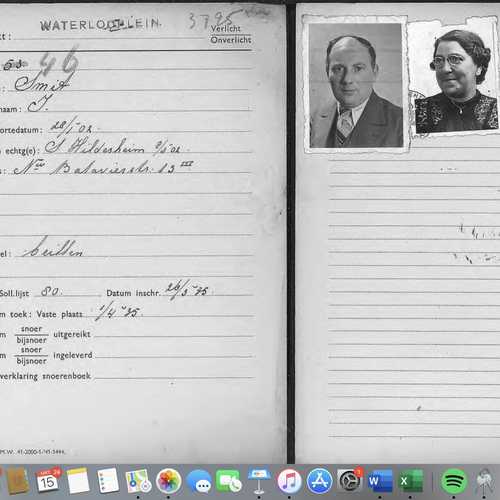 WATERLOOPLEIN. 3795
kt: Verlicht
Onverlicht
63 46
: Smit
naam: J.
ortedatum: 28/1 02.
echtg(e): S Hildesheim 9/5 02.
: Nw Batavierstr. 13 III
el:
Soll.lijst 80. Datum inschr. 26/3 '35.
m toek: Vaste plaats 1/4 '35.
m snoer
bijsnoer uitgereikt
m snoer
bijsnoer ingeleverd
verklaring snoerenboek
M.W. 41-2000-5-'41-5444.
OKT. 26
15
1
W
X